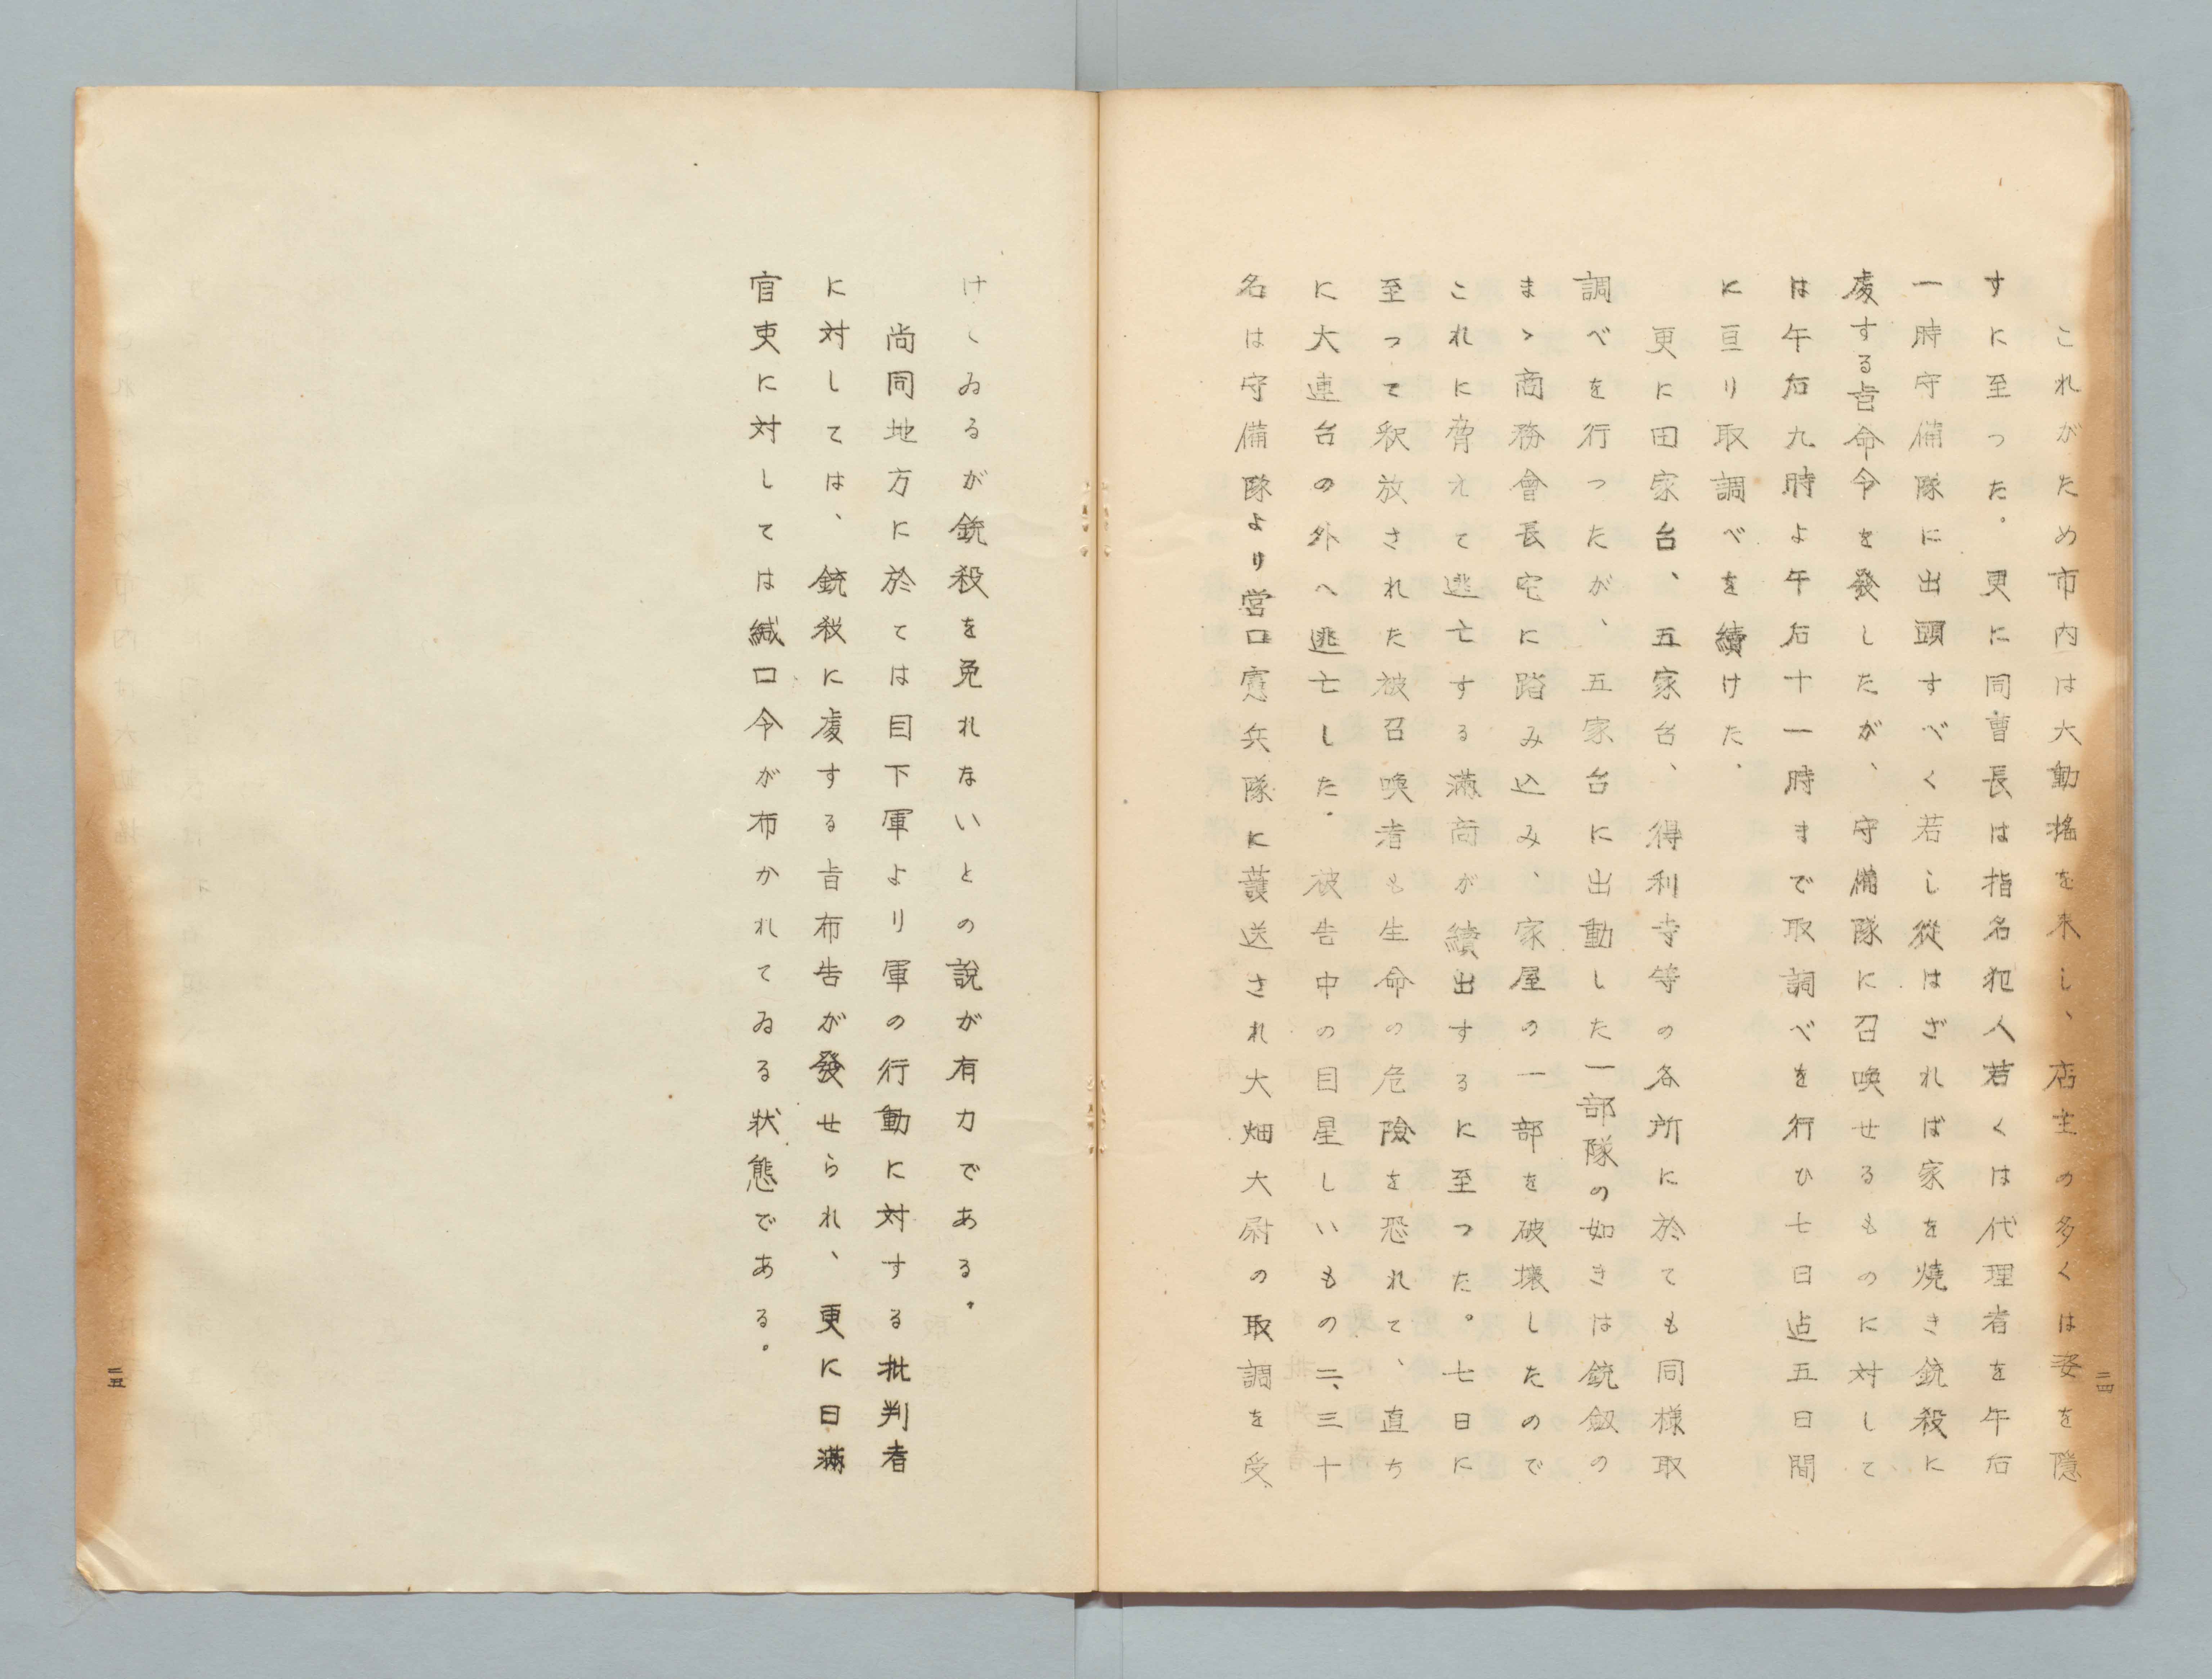 これがため市内は大動搖を来し、店主の多くは姿を隱
すに至つた。更に同曹長は指名犯人若くは代理者を午后
一時守備隊に出頭すべく若し從はざれば家を燒き銃殺に
處する旨命令を發したが、守備隊に召喚せるものに対して
は午后九時よ午后十一時まで取調べを行ひ七日迠五日間
に亘り取調べを續けた、
更に田家台、五家台、得利寺等の各所に於ても同様取
調べを行つたが、五家台に出動した一部隊の如きは銃劔の
まゝ商務會長宅に踏み込み、家屋の一部を破壊したので
これに脅えて逃亡する満商が續出するに至つた。七日に
至つて釈放された被召喚者も生命の危險を恐れて、直ち
に大連台の外へ逃亡した。被告中の目星しいもの二、三十
名は守備隊より営口憲兵隊に護送され大畑大尉の取調を受
二四
けてゐるが銃殺を免れないとの説が有力である。
尚同地方に於ては目下軍より軍の行動に対する批判者
に対しては、銃殺に處する旨布告が發せられ、更に日満
官吏に対しては緘口令が布かれてゐる状態である。
二五